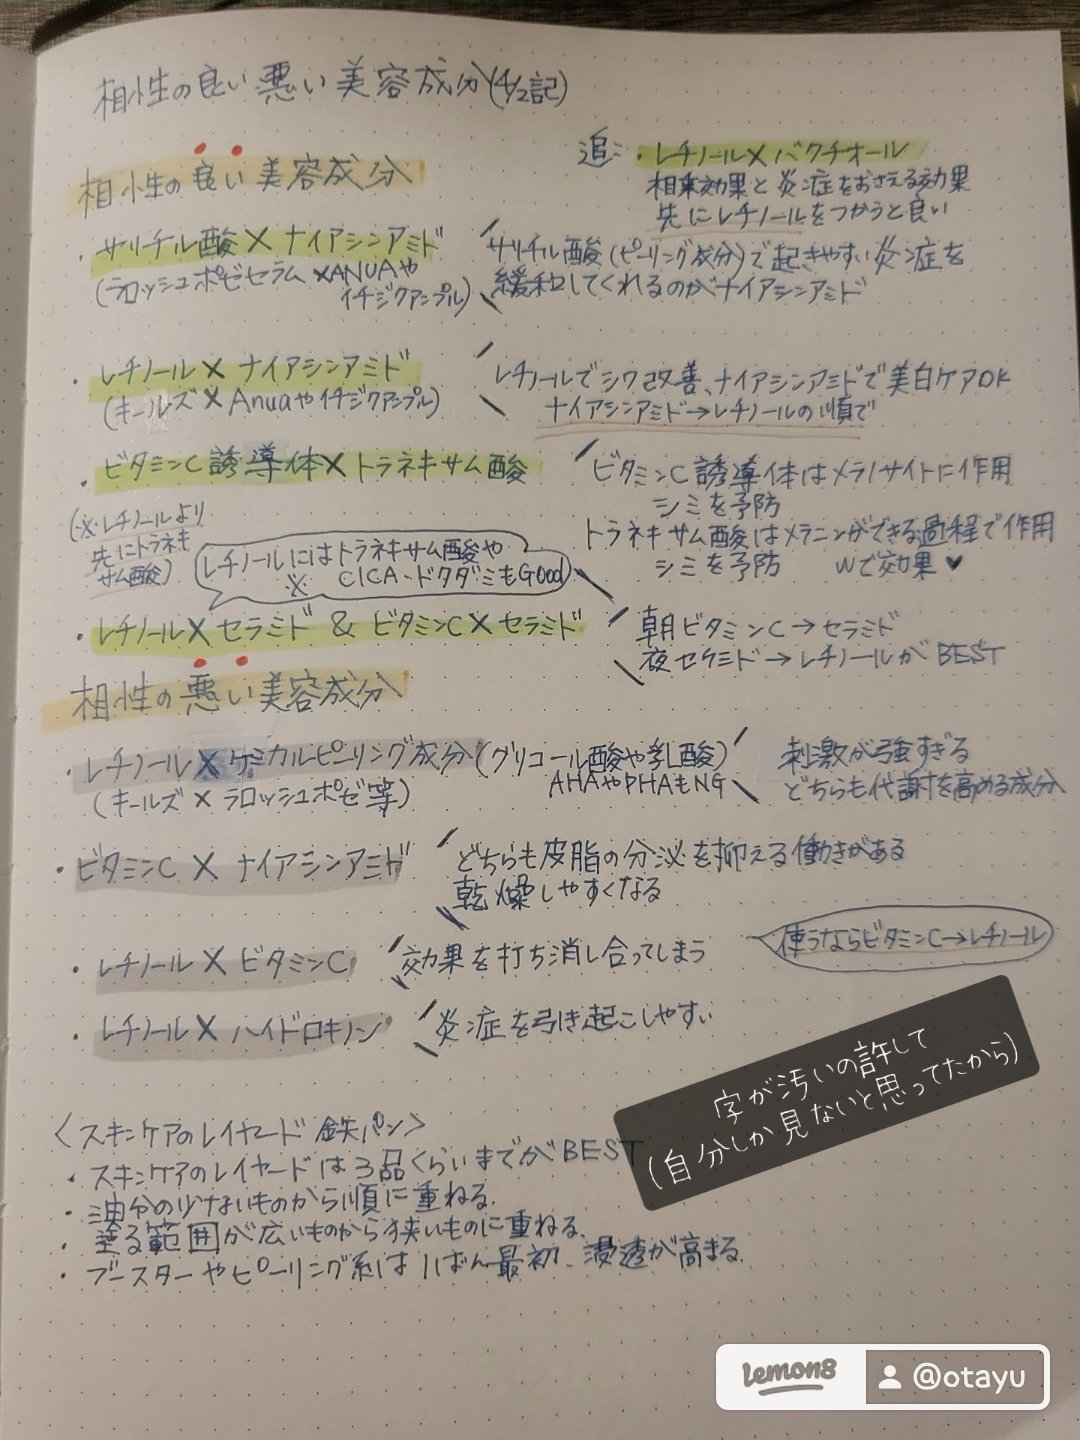 相性の良い悪い美容成分(4/2記)
相性の良い美容成分
追:・レチノール×バクチオール
相乗効果と炎症をおさえる効果
先にレチノールをつかうと良い
・サリチル酸×ナイアシンアミド
(ラロッシュポゼセラム×ANUAや
イチジクアンプル)
サリチル酸(ピーリング成分)で起きやすい炎症を
緩和してくれるのがナイアシンアミド
・レチノール×ナイアシンアミド
(キールズ×Anuaやイチジクアンプル)
レチノールでシワ改善、ナイアシンアミドで美白ケアOK
ナイアシンアミド→レチノールの順で
・ビタミンC誘導体×トラネキサム酸
(※レチノールより
先にトラネキ
サム酸)
ビタミンC誘導体はメラノサイトに作用
シミを予防
トラネキサム酸はメラニンができる過程で作用
シミを予防 Wで効果♥
レチノールにはトラネキサム酸や
※ CICA・ドクダミもGood
・レチノール×セラミド & ビタミンC×セラミド
朝ビタミンC→セラミド
夜セラミド→レチノールがBEST
相性の悪い美容成分
・レチノール×ケミカルピーリング成分(グリコール酸や乳酸)
AHAやPHAもNG
(キールズ×ラロッシュポゼ等)
刺激が強すぎる
どちらも代謝を高める成分
・ビタミンC×ナイアシンアミド
どちらも皮脂の分泌を抑える働きがある
乾燥しやすくなる
・レチノール×ビタミンC
効果を打ち消し合ってしまう
使うならビタミンC→レチノール
・レチノール×ハイドロキノン
炎症を引き起こしやすい
字が汚いの許して
(自分しか見ないと思ってたから)
<スキンケアのレイヤード鉄パン>
・スキンケアのレイヤードは3品くらいまでがBEST
・油分の少ないものから順に重ねる.
・塗る範囲が広いものから狭いものに重ねる.
・ブースターやピーリング系は11ばん最初.浸透が高まる.
lemon8 @otayu